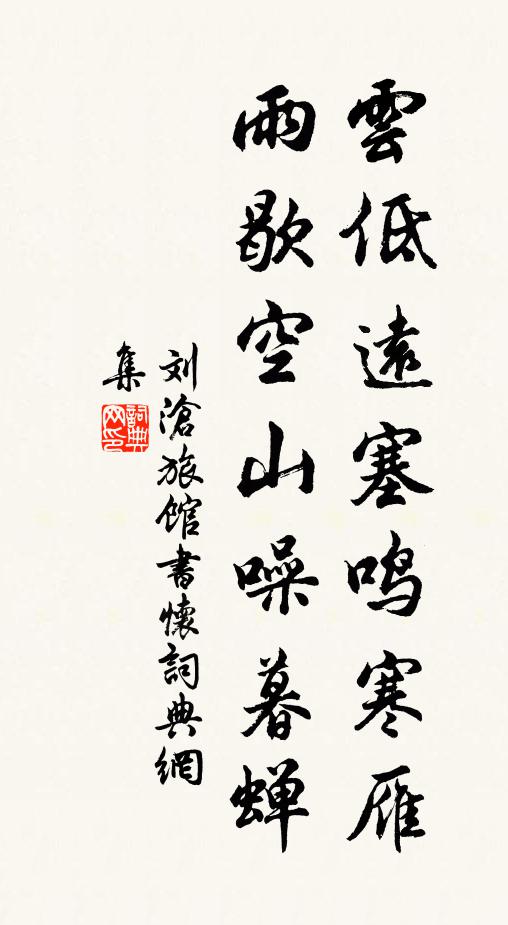 雲低遠塞鸣寒雁
雨歇空山噪暮蝉
刘滄旅馆書懷詞典網
集
詞典网印